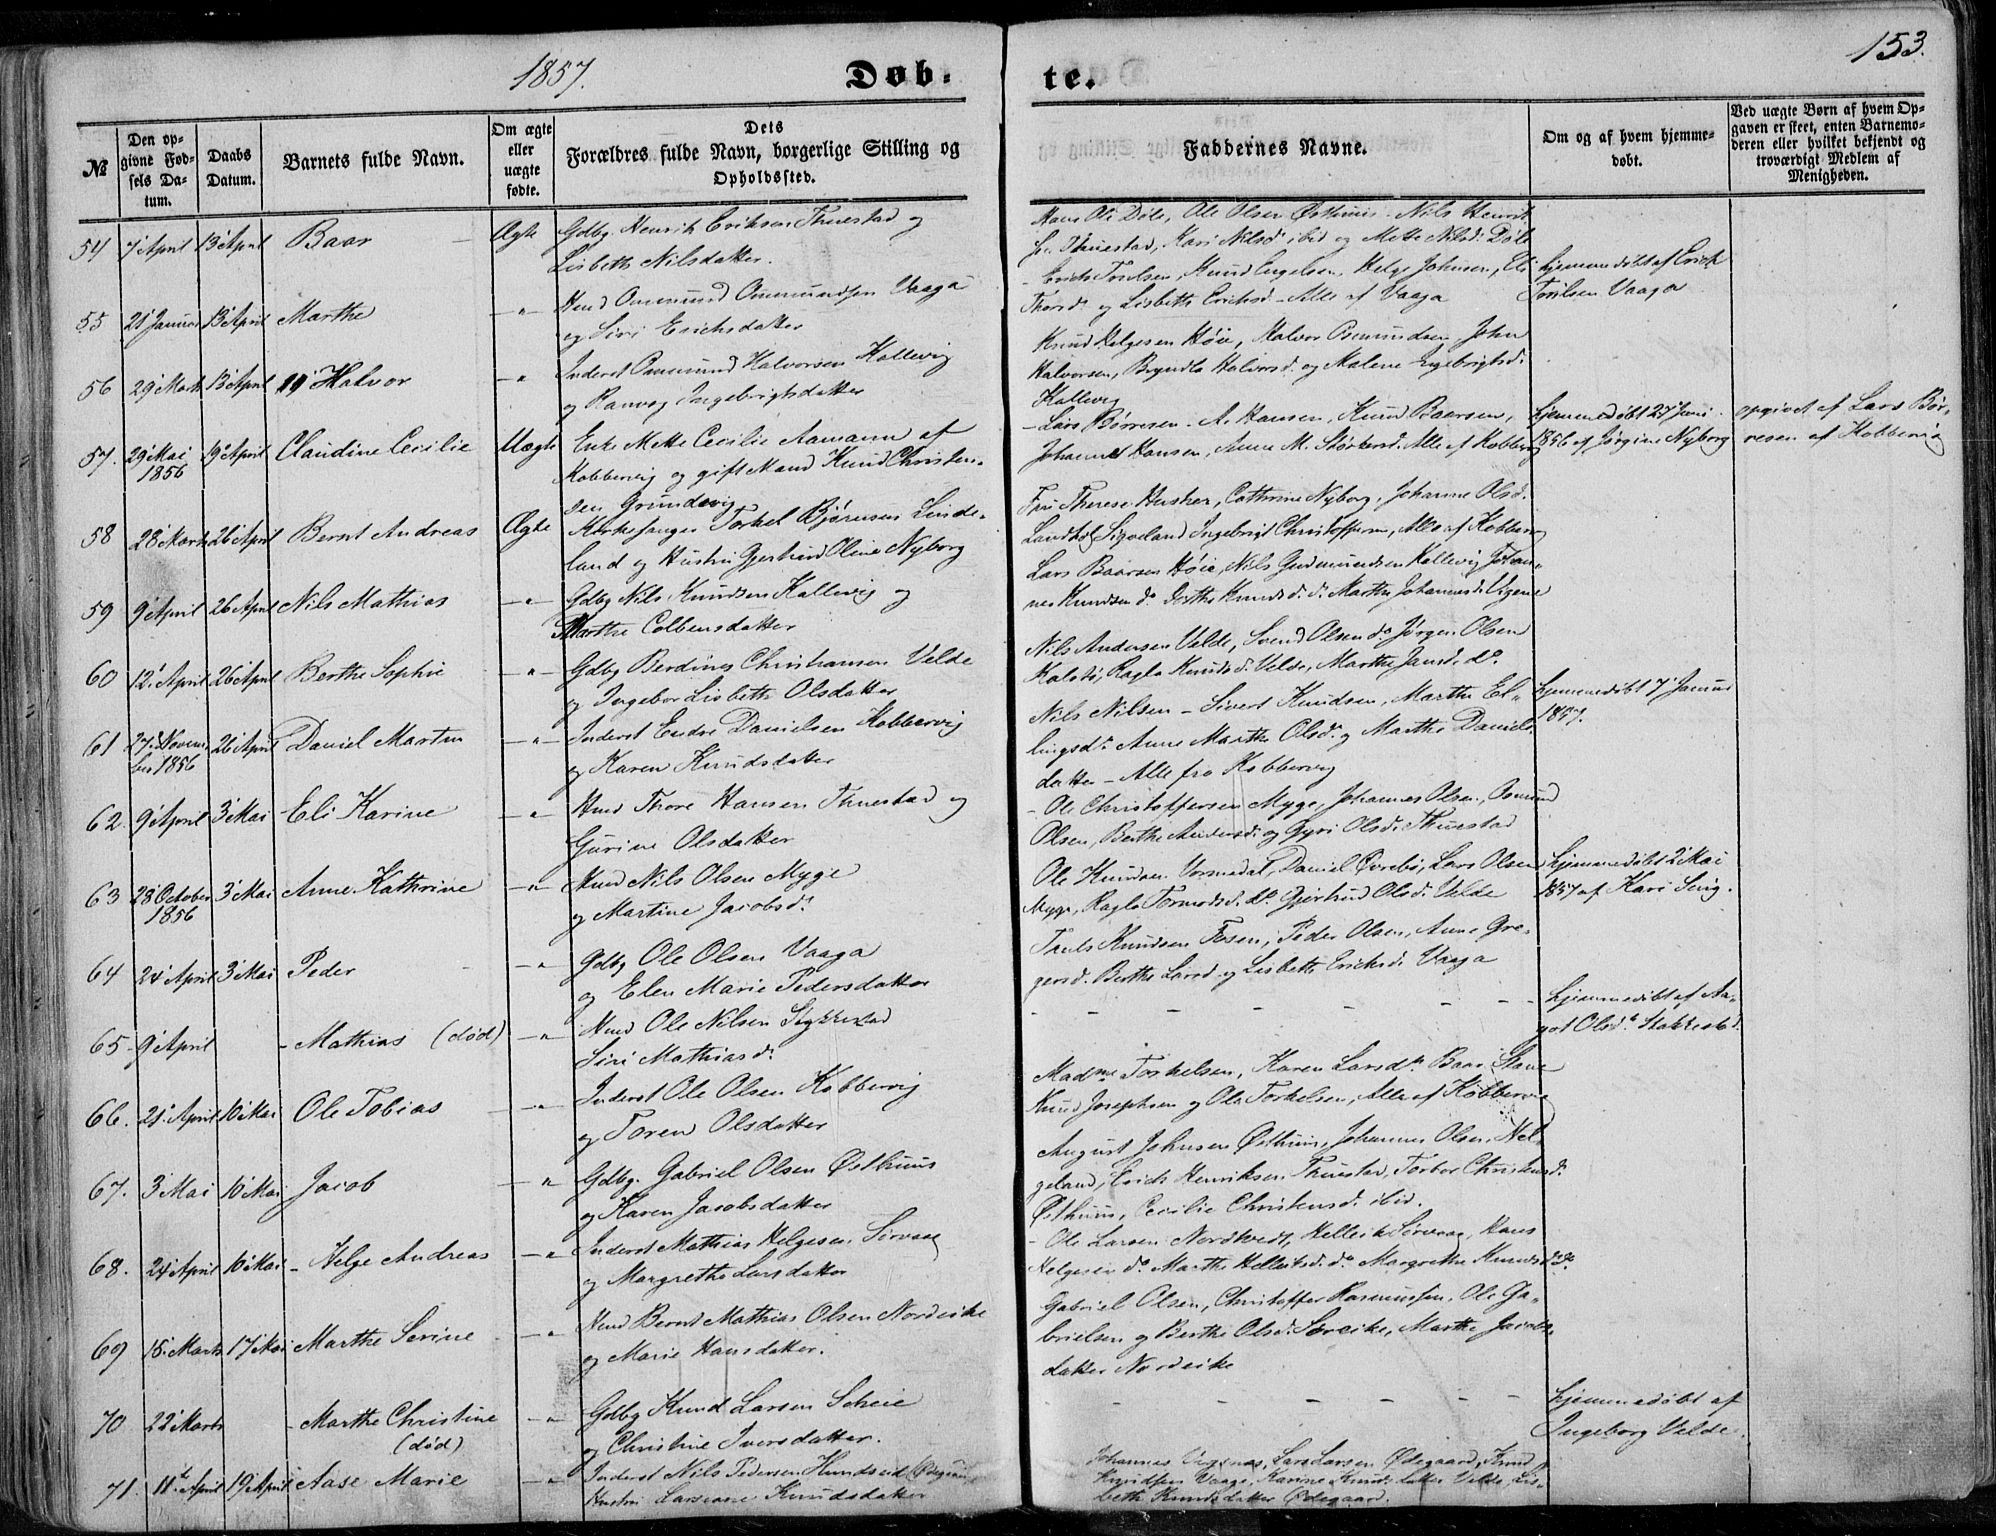 1857.
Døb-
te.
153.
№
Den op-
givne Fød-
sels Da-
tum.
Daabs
Datum.
Barnets fulde Navn.
Om ægte
eller
uægte
fødte.
Dets
Forældres fulde Navn, borgerlige Stilling og
Opholdssted.
Faddernes Navne.
Om og af hvem hjemme-
døbt.
Ved uægte Børn af hvem Op-
gaven er skeet, enten Barnemo-
deren eller hvilket bekjendt og
troværdigt Medlem af
Menigheden.
54 7' April 13' April Baar Ægte Gdbg. Henrik Eriksen Thuestad og
Lisbeth Nilsdatter.
Hans Ols. Døle, Ole Olsen Østhuus - Nils Henrik-
sen Thuestad, Kari Nilsd. ibid og Mette Nilsd. Døle
55 21' Januar 13' April Marthe -"- Hmd Ommund Ommundsen Vaaga
og Siri Erichsdatter
- Erich Torilsen, Knud Engelsen, Helge Johnsen, Eli
Thorsd. og Lisbeth Erichsd. - Alle af Vaaga
hjemmedøbt af Erich
Torilsen Vaaga
56 29' Marts 13' April Halvor -"- Inderst Ommund Halvorsen Kallevig
og Ranvog Ingebrigtsdatter
Knud Helgesen Høie, Halvor Osmundsen, John
Halvorsen, Bryndla Halvorsd. og Malene Ingebrigtsd.
Kallevig
57. 29' Mai
1856 19' April Claudine Cecilie Uægte Enke Mette Cecilie Aamann af
Kobbervig og gift Mand Knud Christen-
sen Grundevig
- Lars Børresen - A. Hansen, Knud Baarsen,
Johannes Hansen, Anne M. Størkersd. Alle af Kobbervig
hjemmedøbt 27' Juni
1856 af Jørgine Nyborg
opgivet af Lars Bør-
resen af Kobbervig
58 28' Marts 26' April Bernt Andreas Ægte Kirkesanger Torkel Bjørnsen Linde-
land og Hustru Gjertrud Oline Nyborg
Fru Therese Husher, Cathrine Nyborg, Johanne Olsd.
Sigveland Ingebrigt Christoffersen, Alle af Kobbervig
59 9' April 26 April Nils Mathias -"- Gdbg Nils Knudsen Kallevig og
Marthe Colbensdatter
Lars Baarsen Høie, Nils Gudmundsen Kallevig Johan-
nes Knudsen do. Berthe Knudsd. do. Marthe Johannesd. Vigene
60 12' April 26 April Berthe Sophie -"- Gdbg Berdines Christiansen Velde
og Ingebor Lisbeth Olsdatter
Nils Andersen Velde, Svend Olsen do. Jørgen Olsen
Kalstø, Ragla Knudsd. Velde, Marthe Jansd. do.
61 27' Novem-
ber 1856 26 April Daniel Martin -"- Inderst Endre Danielsen Kobbervig
og Karen Knudsdatter
Nils Nilsen - Sivert Knudsen, Marthe El-
lingsdr. Anne Marthe Olsd. og Marthe Daniels-
datter - Alle fra Kobbervig
hjemmedøbt 7' Januar
1857.
62. 9' April 3' Mai Eli Karine -"- Hmd Thore Hansen Thuestad og
Gurine Olsdatter
- Ole Christoffersen Myge, Johannes Olsen, Osmund
Olsen, Berthe Andersd. og Gyri Olsd. Thuestad
63 28' October
1856 3' Mai Anne Kathrine -"- Hmd Nils Olsen Myge
og Martine Jacobsd.
Ole Knudsen Vormedal, Daniel Øvrebø, Lars Olsen
Myge, Ragla Tormodsd. do. Gjertrud Olsd. Velde
hjemmedøbt 2' Mai
1857 af Kari Snig.
64 24' April 3' Mai Peder -"- Gdbg Ole Olsen Vaaga
og Elen Marie Pedersdatter
Truls Knudsen Fosen, Peder Olsen, Anne Gre-
gersd. Berthe Larsd. og Lisbeth Erichsd. Vaaga
65 - 9' April - Mathias (død) -"- Hmd Ole Nilsen Stokkestad
Siri Mathiasd.
- - - - - - - -
hjemmedøbt af Aa-
got Olsdr. Stokkestad.
66. 21' April 10' Mai Ole Tobias -"- Inderst Ole Olsen Kobbervig
og Toren Olsdatter
Madme. Torkelsen, Karen Larsdr. Baar Stave
Knud Josephsen og Ole Torkelsen, Alle af Kobbervig
67. 3' Mai 10' Mai Jacob -"- Gdbg. Gabriel Olsen Østhuus
og Karen Jacobsdatter
August Johnsen Østhuus, Johannes Olsen Hel-
geland, Erich Henriksen Thuestad, Torbor Christensd.
Østhuus, Cecilie Christensd. ibid.
68. 24' April 10' Mai - Helge Andreas -"- Inderst Mathias Helgesen Sørvaag
og Margrethe Larsdatter
- Ole Larsen Nordtvedt, Hellik Sørvaag, Hans
Helgesen do. Marthe Helleiksd. do. Margrethe Knudsd. do.
69 15. Marts 17' Mai Marthe Serine -"- Hmd Bernt Mathias Olsen Nordeike
og Marie Hansdatter.
Gabriel Olsen, Christoffer Rasmussen, Ole Ga-
brielsen og Berthe Olsd. Søreike, Marthe Jacobs-
datter Nordeike
70 22' Marts - Marthe Christine
(død) -"- Gdbg Knud Larsen Scheie
og Christine Iversdatter.
- - - - - - -
hjemmedøbt af
Ingeborg Velde.
71. 11te April 19' April Aase Marie -"- Inderst Nils Pedersen Hundseid (Ødegaard)
Hustru Larsiane Knudsdatter
Johannes Vigenæs, Lars Larsen Ødegaard, Knud
Knudsen Vaage, Karine Knudsdatter Velde, Lis-
beth Knudsdatter Ødegaard.